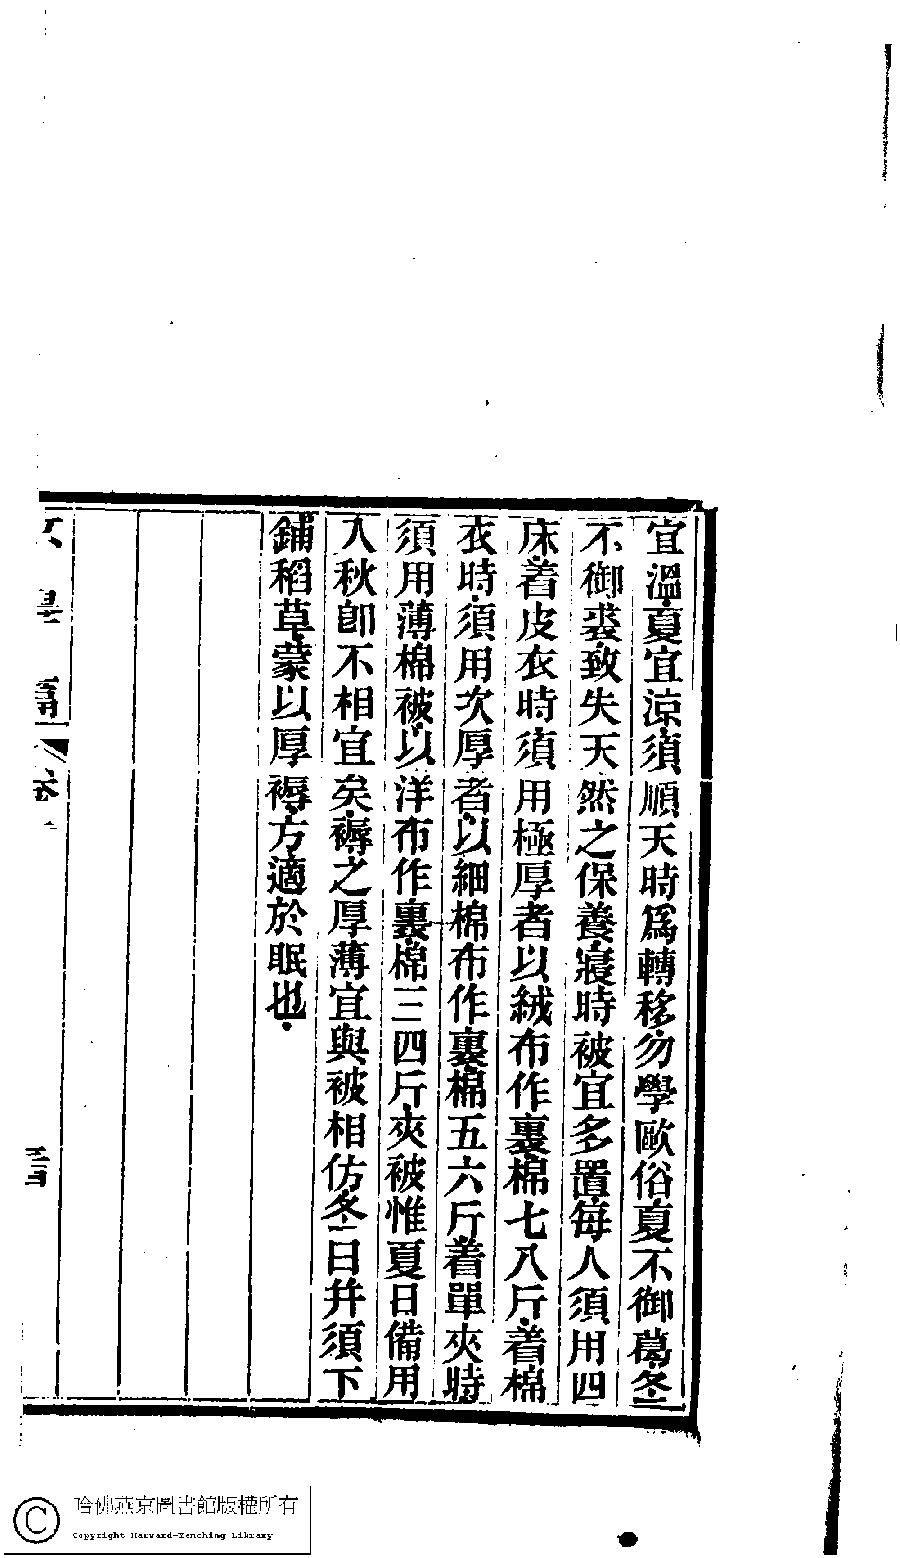 宜溫夏宜涼須順天時爲轉移勿學歐俗夏不御葛冬
不御裘致失天然之保養寢時被宜多置每人須用四
床着皮衣時須用極厚者以絨布作裏棉七八斤着棉
衣時須用次厚者以細棉布作裏棉五六斤着單夾時
須用薄棉被以洋布作裏棉三四斤夾被惟夏日備用
入秋卽不相宜矣褥之厚薄宜與被相仿冬日幷須下
鋪稻草蒙以厚褥方適於眠也
哈佛燕京圖書館版權所有
Copyright Harvard-Yenching Library